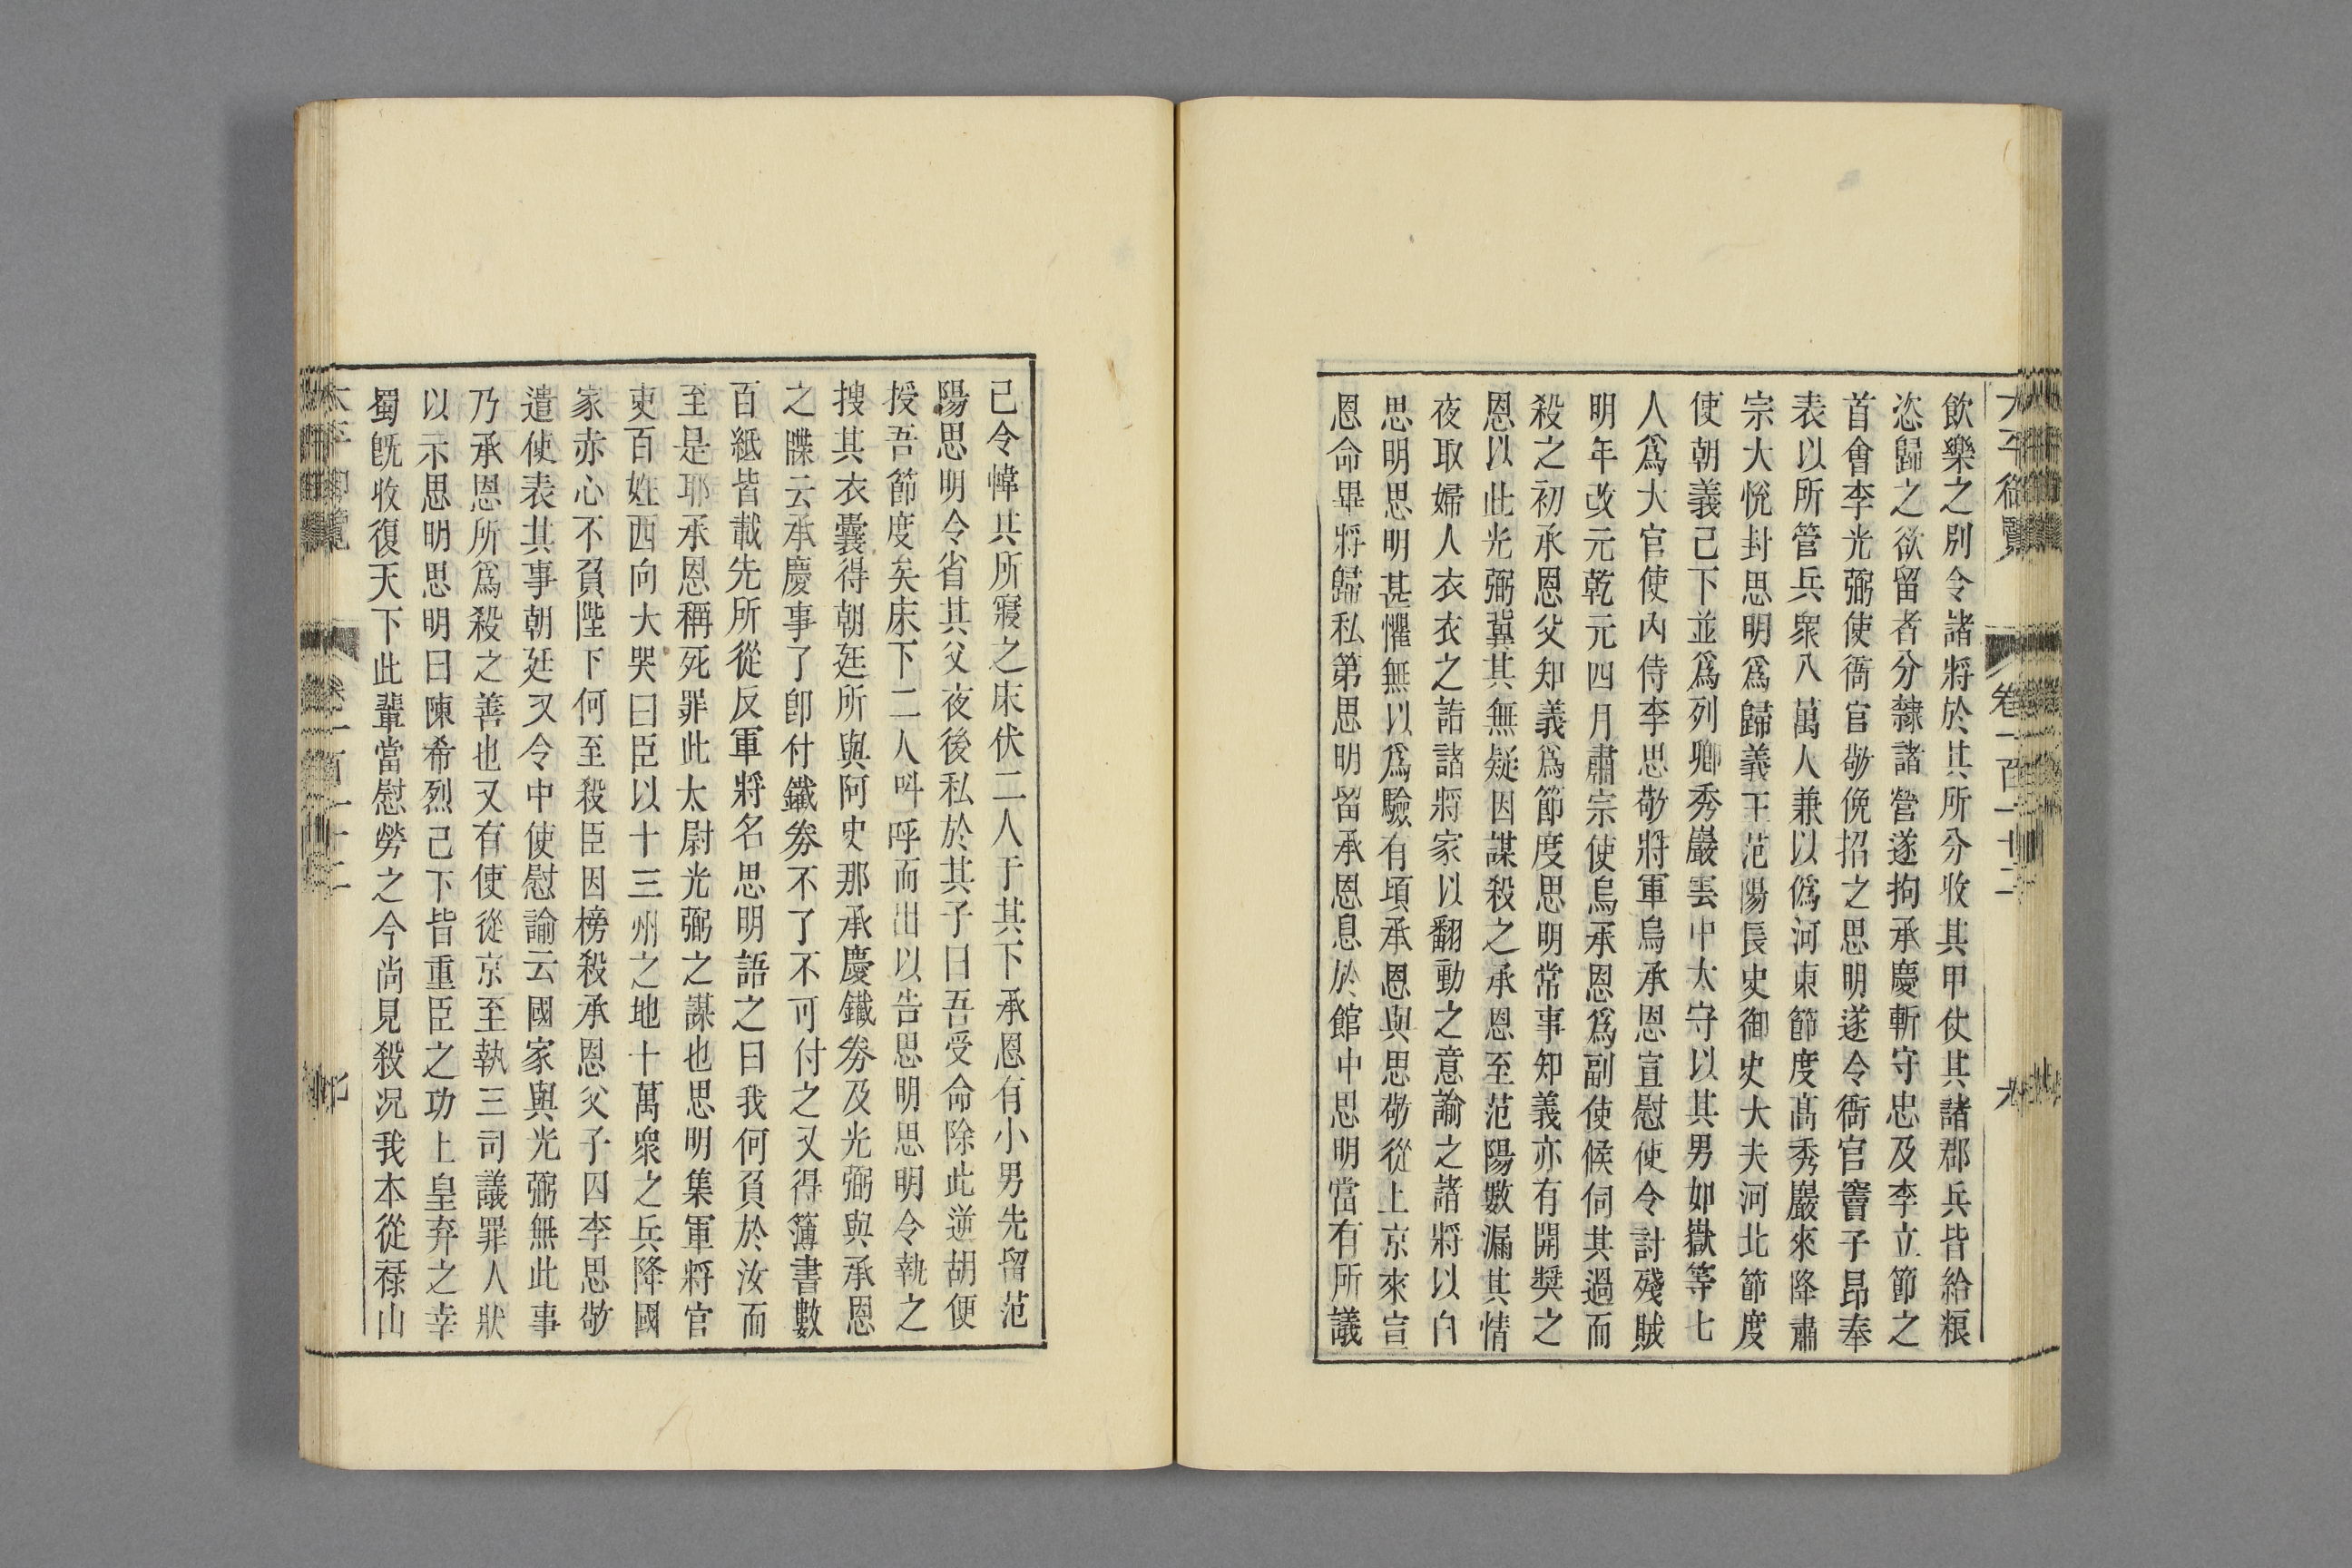 飲樂之別令諸將於其所分收其甲仗其諸郡兵皆給糧
恣歸之欲留者分隸諸營遂拘承慶斬守忠及李立節之
首會李光弼使衙官敬俛招之思明遂令衙官竇子昂奉
表以所管兵衆八萬人兼以僞河東節度髙秀巖來降肅
宗大悅封思明爲歸義王范陽長史御史大夫河北節度
使朝義己下並爲列卿秀巖雲中太守以其男如嶽等七
人爲大官使內侍李思敬將軍烏承恩宣慰使令討殘賊
明年改元乾元四月肅宗使烏承恩爲副使候伺其過而
殺之初承恩父知義爲節度思明常事知義亦有開奬之
恩以此光弼冀其無疑因謀殺之承恩至范陽數漏其情
夜取婦人衣衣之詣諸將家以翻動之意諭之諸將以白
思明思明甚懼無以爲驗有頃承恩與思敬從上京來宣
恩命畢將歸私第思明留承恩息於館中思明當有所議
己令幃其所寢之床伏二人于其下承恩有小男先留范
陽思明令省其父夜後私於其子曰吾受命除此逆胡便
授吾節度矣床下二人呌呼而出以告思明思明令執之
搜其衣囊得朝廷所與阿史那承慶鐵劵及光弼與承恩
之牒云承慶事了卽付鐵劵不了不可付之又得簿書數
百紙皆載先所從反軍將名思明語之曰我何負於汝而
至是耶承恩稱死罪此太尉光弼之謀也思明集軍將官
吏百姓西向大哭曰臣以十三州之地十萬衆之兵降國
家赤心不負陛下何至殺臣因榜殺承恩父子囚李思敬
遣使表其事朝廷又令中使慰諭云國家與光弼無此事
乃承恩所爲殺之善也又有使從京至執三司議罪人狀
以示思明思明曰陳希烈己下皆重臣之功上皇弃之幸
蜀旣收復天下此輩當慰勞之今尚見殺况我本從祿山